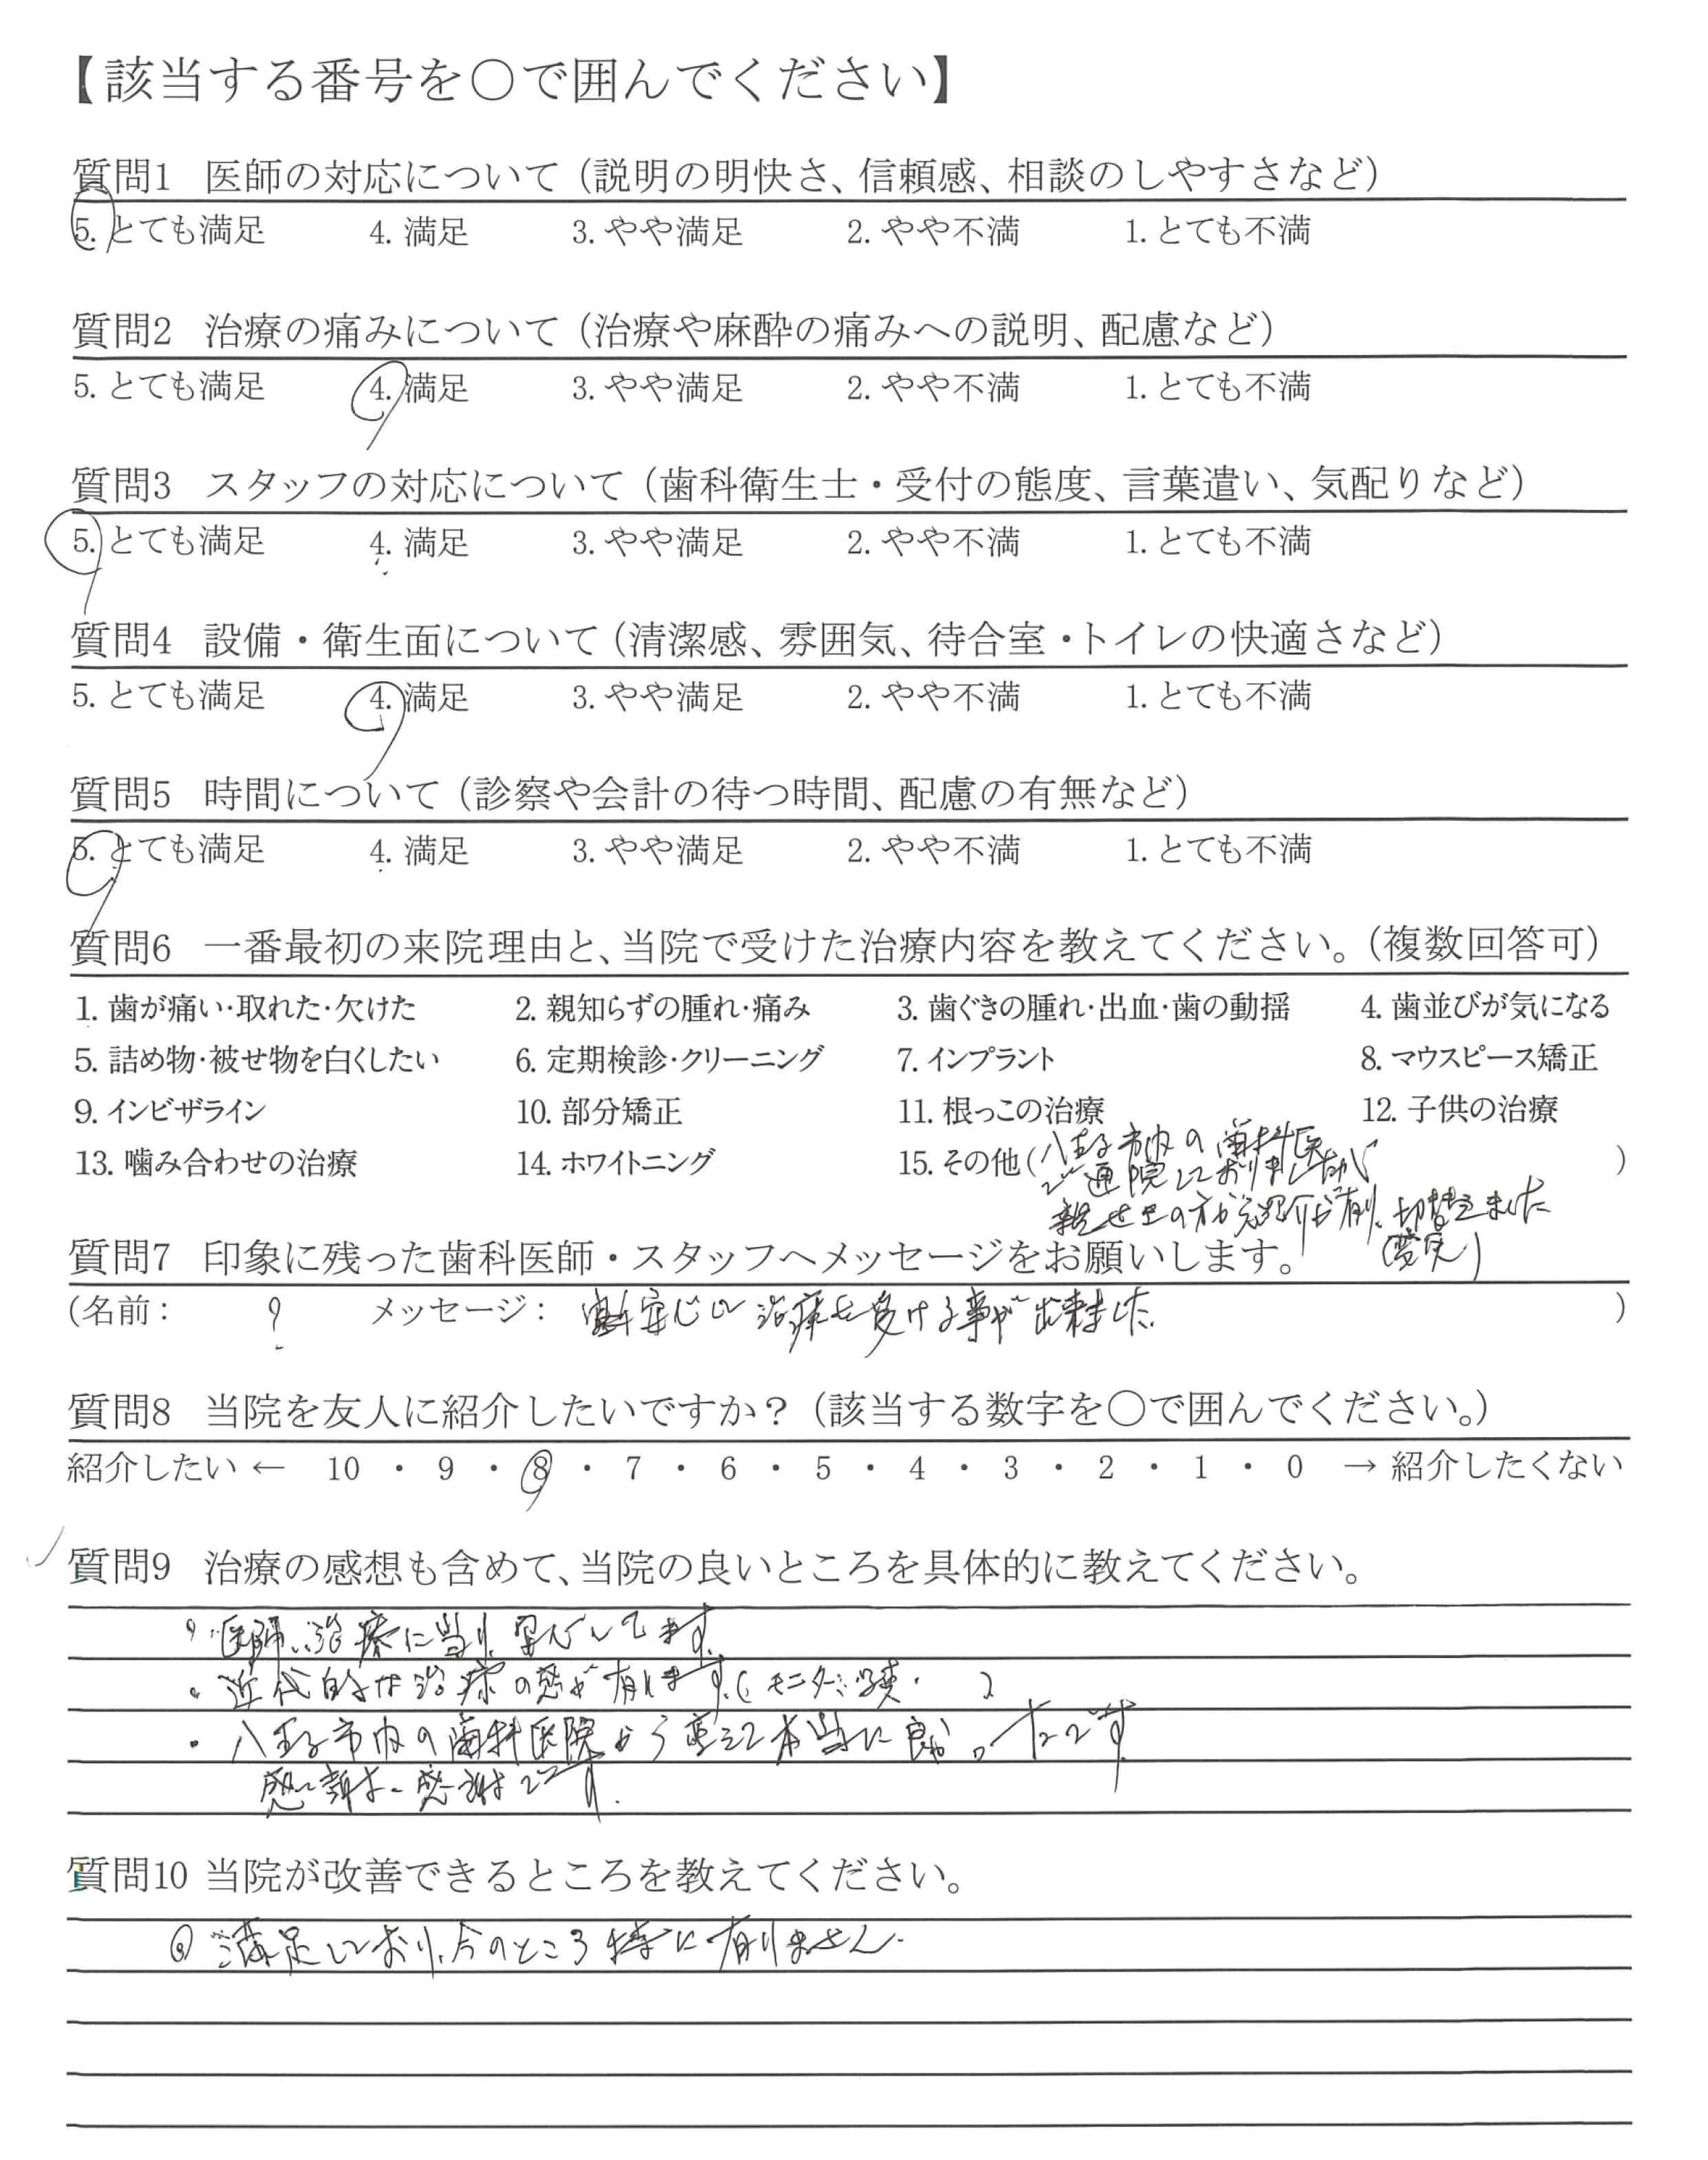 【該当する番号を〇で囲んでください】
質問1 医師の対応について（説明の明快さ、信頼感、相談のしやすさなど）
5. とても満足 4. 満足 3. やや満足 2. やや不満 1. とても不満
質問2 治療の痛みについて（治療や麻酔の痛みへの説明、配慮など）
5. とても満足 4. 満足 3. やや満足 2. やや不満 1. とても不満
質問3 スタッフの対応について（歯科衛生士・受付の態度、言葉遣い、気配りなど）
5. とても満足 4. 満足 3. やや満足 2. やや不満 1. とても不満
質問4 設備・衛生面について（清潔感、雰囲気、待合室・トイレの快適さなど）
5. とても満足 4. 満足 3. やや満足 2. やや不満 1. とても不満
質問5 時間について（診察や会計の待つ時間、配慮の有無など）
5. とても満足 4. 満足 3. やや満足 2. やや不満 1. とても不満
質問6 一番最初の来院理由と、当院で受けた治療内容を教えてください。（複数回答可）
1. 歯が痛い・取れた・欠けた 2. 親知らずの腫れ・痛み 3. 歯ぐきの腫れ・出血・歯の動揺 4. 歯並びが気になる
5. 詰め物・被せ物を白くしたい 6. 定期検診・クリーニング 7. インプラント 8. マウスピース矯正
9. インビザライン 10. 部分矯正 11. 根っこの治療 12. 子供の治療
13. 噛み合わせの治療 14. ホワイトニング 15. その他（八王子市内の歯科医
で通院しておりましたが ）
の方から紹介が有り、切替えました
（変更）
質問7 印象に残った歯科医師・スタッフへメッセージをお願いします。
(名前： ? メッセージ： 安心して治療を受ける事が出来ました ）
質問8 当院を友人に紹介したいですか？（該当する数字を〇で囲んでください。）
紹介したい ← 10 ・ 9 ・ 8 ・ 7 ・ 6 ・ 5 ・ 4 ・ 3 ・ 2 ・ 1 ・ 0 → 紹介したくない
質問9 治療の感想も含めて、当院の良いところを具体的に教えてください。
・医師、治療に当り、安心してます。
・近代的な治療の感が有ります。（モニター ）
・八王子市内の歯科医院から変えて本当に良かったです
感謝、感謝です。
質問10 当院が改善できるところを教えてください。
◎満足しており、今のところ特に有りません。